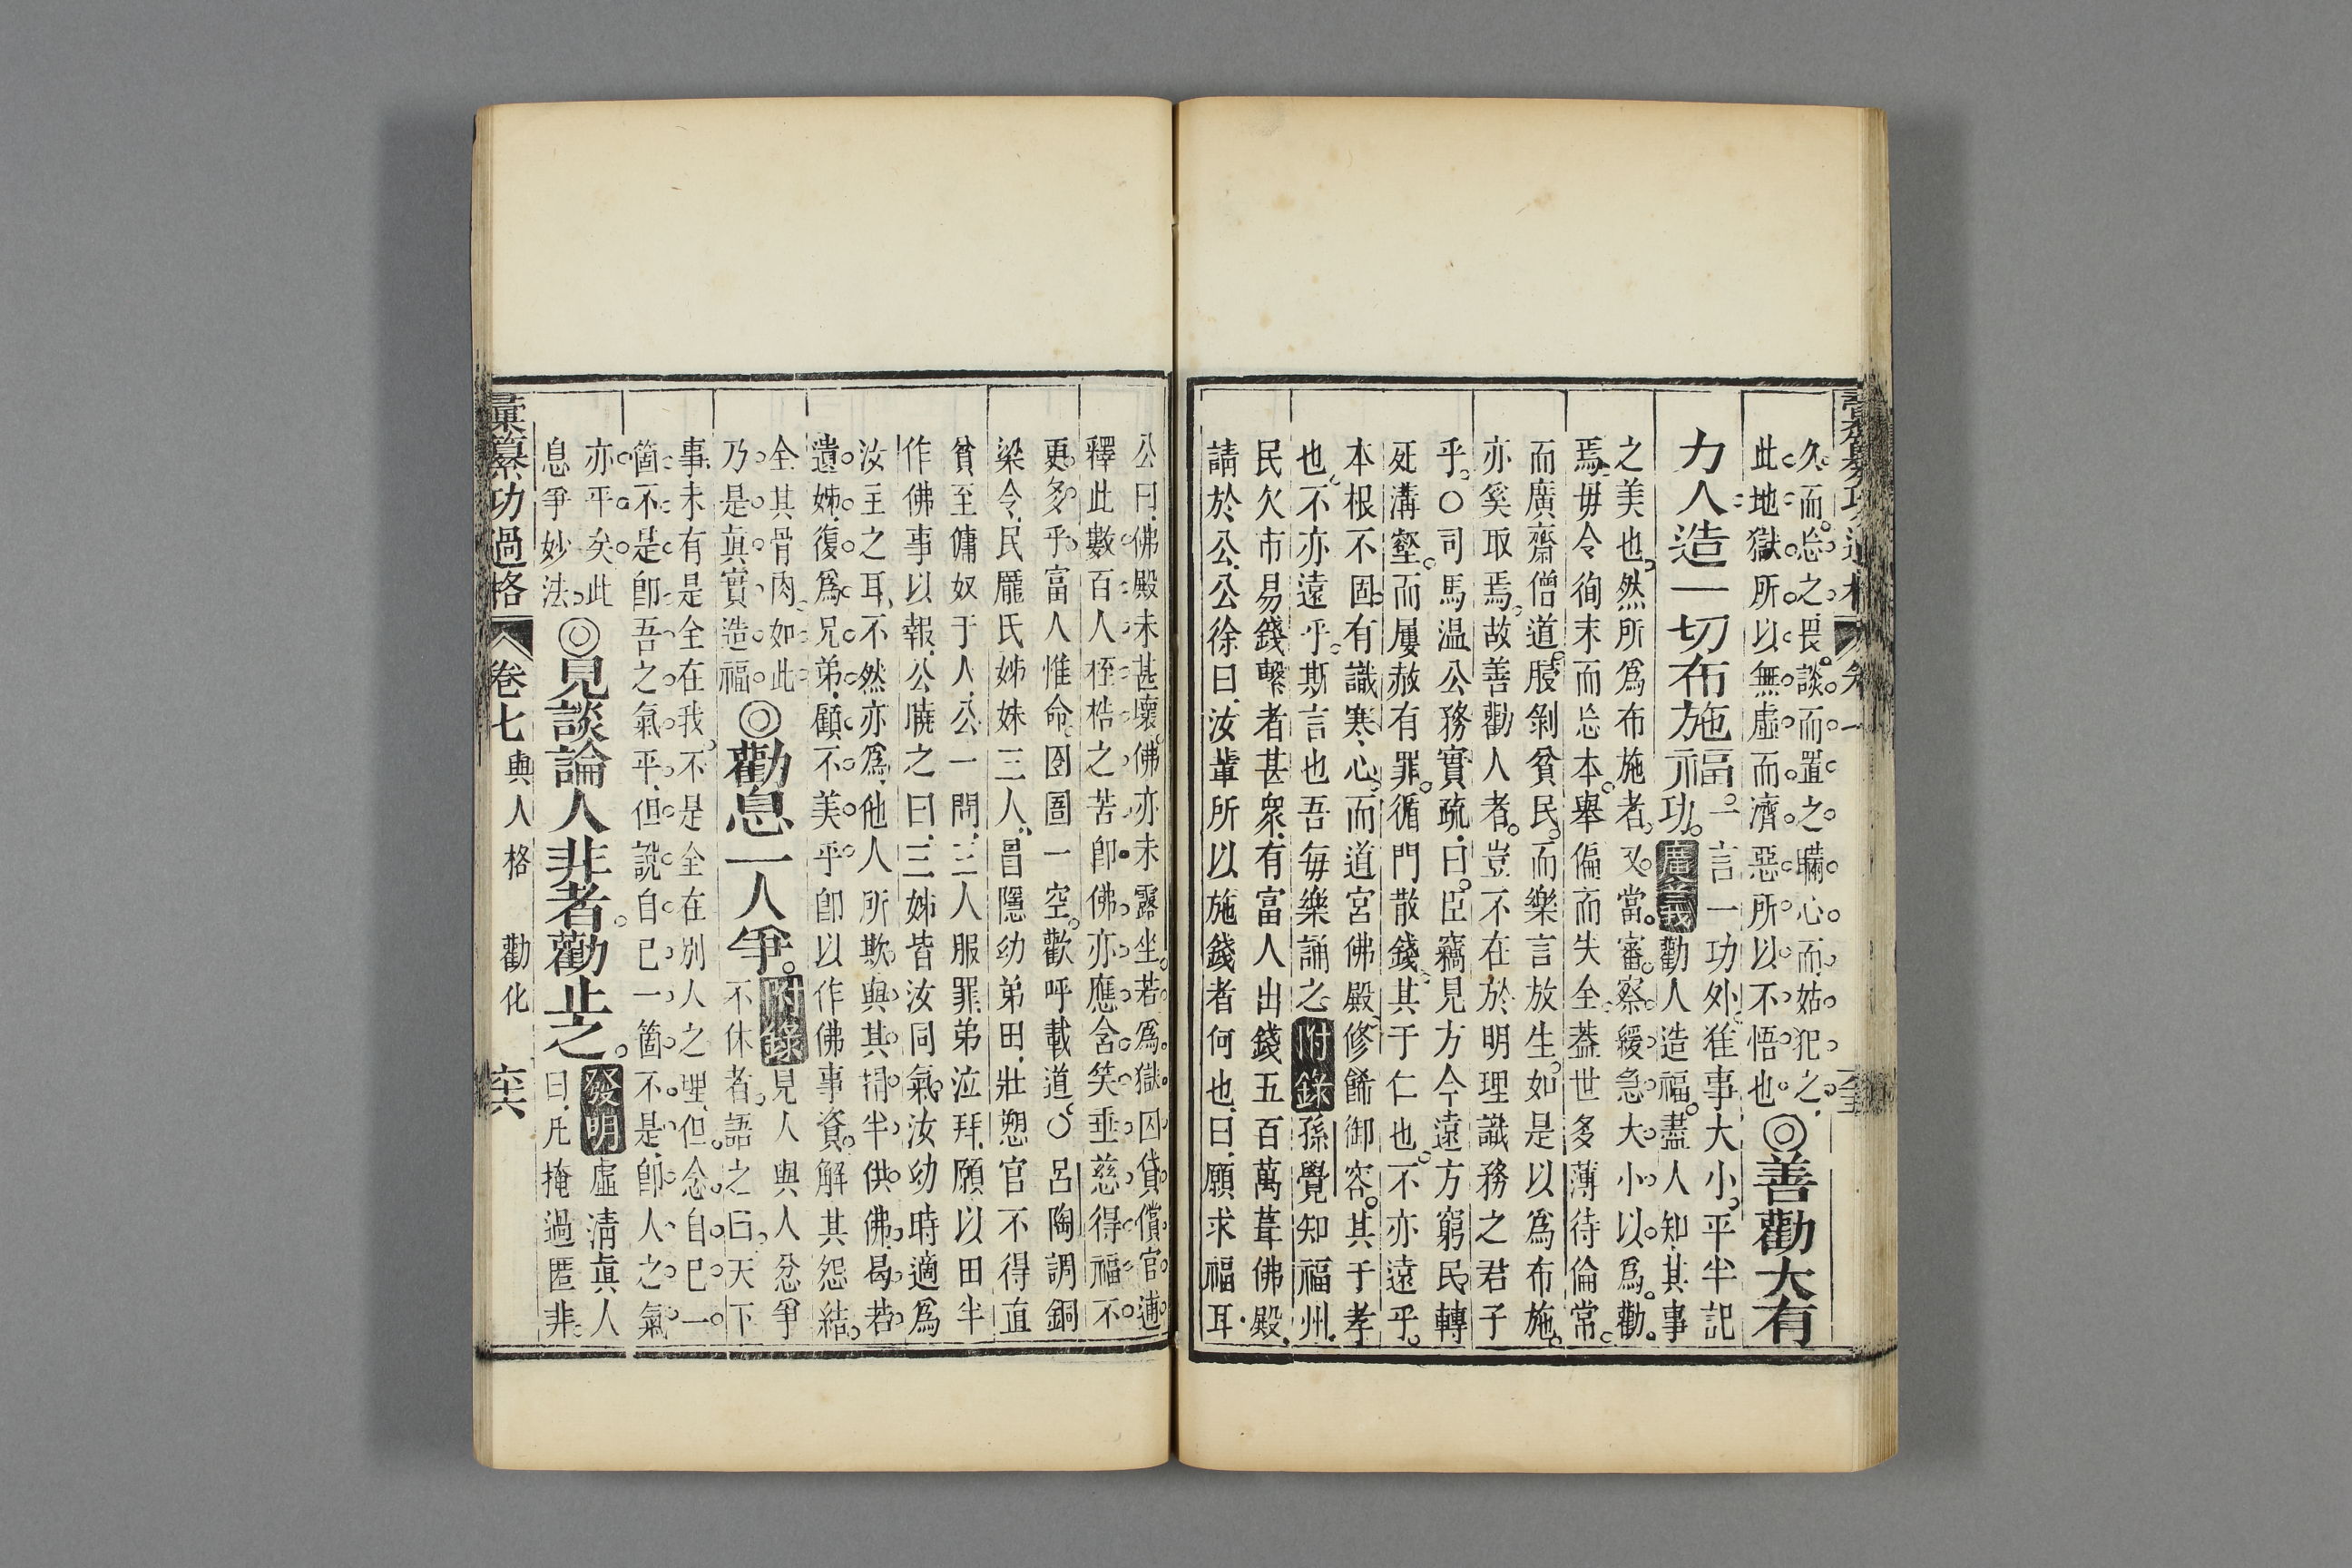 久而忘之畏談而置之瞞心而姑犯之
此地獄所以無虛而濟惡所以不悟也◎善勸大有
力人造一切布施福一言一功外隹事大小平半記
功廣義勸人造福盡人知其事
之美也然所爲布施者又當審察緩急大小以爲勸
焉毋令徇末而忘本舉偏而失全葢世多薄待倫常
而廣齋僧道朘剝貧民而樂言放生如是以爲布施
亦奚取焉故善勸人者豈不在於明理識務之君子
乎○司馬温公務實疏曰臣竊見方今遠方窮民轉
死溝壑而屢赦有罪循門散錢其于仁也不亦遠乎
本根不固有識寒心而道宮佛殿修餙御容其于孝
也不亦遠乎斯言也吾每樂誦之附錄孫覺知福州
民欠市易錢繫者甚衆有富人出錢五百萬葺佛殿
請於公公徐曰汝輩所以施錢者何也曰願求福耳
公曰佛殿未甚壞佛亦未露坐若爲獄囚貸償官逋
釋此數百人桎梏之苦卽佛亦應含笑垂慈得福不
更多乎富人惟命囹圄一空歡呼載道○呂陶調銅
梁令民龐氏姊妹三人冒隱幼弟田壯愬官不得直
貧至傭奴于人公一問三人服罪弟泣拜願以田半
作佛事以報公曉之曰三姊皆汝同氣汝幼時適爲
汝主之耳不然亦爲他人所欺與其捐半供佛曷若
遺姊復爲兄弟顧不美乎卽以作佛事資解其怨結
全其骨肉如此
乃是眞實造福◎勸息一人爭附錄見人與人忿爭
不休者語之曰天下
事未有是全在我不是全在別人之理但念自己一
箇不是卽吾之氣平但說自己一箇不是卽人之氣
亦平矣此
息爭妙法◎見談論人非者勸止之發明虛淸眞人
曰凡掩過匿非
彙纂功過格 卷七 與人格 勸化 六六